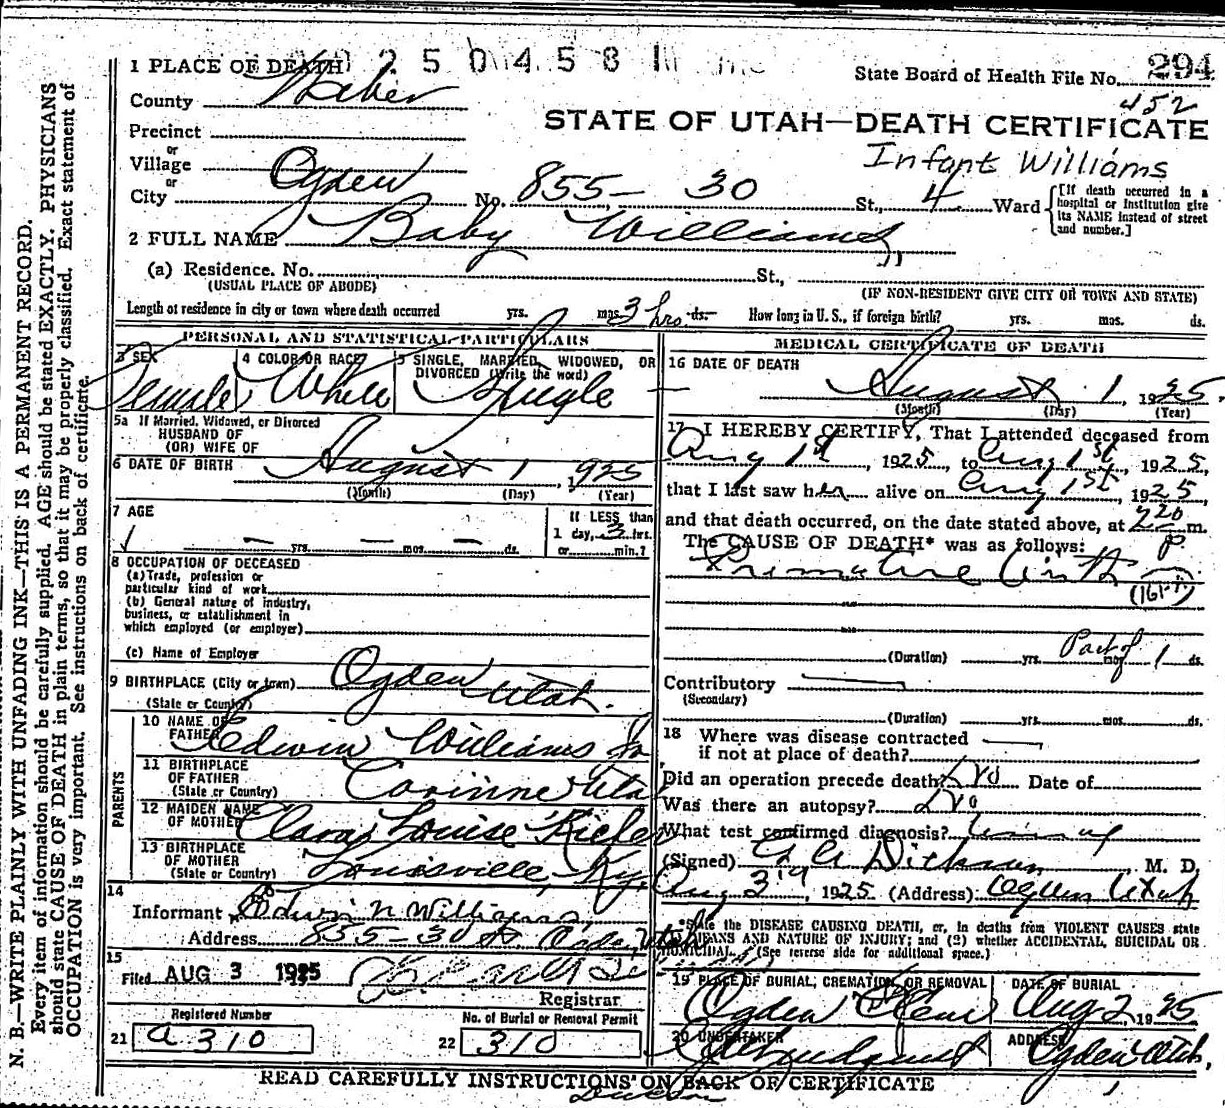 2 5 0 4 5 8 1
State Board of Health File No. 294
452
1 PLACE OF DEATH
County Weber
STATE OF UTAH—DEATH CERTIFICATE
Precinct
or
Village
Infant Williams
or
City Ogden No. 855- 30 St., 4 Ward
[If death occurred in a hospital or institution give its NAME instead of street and number.]
2 FULL NAME Baby Williams
(a) Residence. No. St.,
(USUAL PLACE OF ABODE) (IF NON-RESIDENT GIVE CITY OR TOWN AND STATE)
Length of residence in city or town where death occurred yrs. mos. 3 hrs. ds. How long in U. S., if foreign birth? yrs. mos. ds.
PERSONAL AND STATISTICAL PARTICULARS
3 SEX
Female
4 COLOR OR RACE
White
5 SINGLE, MARRIED, WIDOWED, OR
DIVORCED (Write the word)
Single
5a If Married, Widowed, or Divorced
HUSBAND OF
(OR) WIFE OF
6 DATE OF BIRTH August 1 1925
(Month) (Day) (Year)
7 AGE
yrs. mos. ds.
If LESS than
1 day, 3 hrs.
or min.?
8 OCCUPATION OF DECEASED
(a) Trade, profession or
particular kind of work
(b) General nature of industry,
business, or establishment in
which employed (or employer)
(c) Name of Employer
9 BIRTHPLACE (City or town) Ogden Utah.
(State or Country)
PARENTS
10 NAME OF
FATHER Edwin Williams
11 BIRTHPLACE
OF FATHER
(State or Country) Corinne Utah
12 MAIDEN NAME
OF MOTHER Clara Louise
13 BIRTHPLACE
OF MOTHER
(State or Country) Louisville, Ky.
14
Informant Edwin N Williams
Address 855-30 St Ogden Utah
15
Filed AUG 3 1925
Registrar
Registered Number
21 a 310
No. of Burial or Removal Permit
22 310
MEDICAL CERTIFICATE OF DEATH
16 DATE OF DEATH
August 1, 1925.
(Month) (Day) (Year)
17 I HEREBY CERTIFY, That I attended deceased from
Aug 1st, 1925, to Aug 1st, 1925,
that I last saw her alive on Aug 1st, 1925,
and that death occurred, on the date stated above, at 220 m.
P.
The CAUSE OF DEATH* was as follows:
Premature birth
(Duration) yrs. mos. Part of 1 ds.
Contributory
(Secondary)
(Duration) yrs. mos. ds.
18 Where was disease contracted
if not at place of death?
Did an operation precede death? No Date of
Was there an autopsy? No
What test confirmed diagnosis?
(Signed) M. D.
Aug 3rd, 1925 (Address) Ogden Utah
*State the DISEASE CAUSING DEATH, or, in deaths from VIOLENT CAUSES state
MEANS AND NATURE OF INJURY; and (2) whether ACCIDENTAL, SUICIDAL OR
HOMICIDAL. (See reverse side for additional space.)
19 PLACE OF BURIAL, CREMATION, OR REMOVAL
Ogden
DATE OF BURIAL
Aug 2, 1925
20 UNDERTAKER
ADDRESS
Ogden Utah,
READ CAREFULLY INSTRUCTIONS ON BACK OF CERTIFICATE
N. B.—WRITE PLAINLY WITH UNFADING INK—THIS IS A PERMANENT RECORD.
Every item of information should be carefully supplied. AGE should be stated EXACTLY. PHYSICIANS
should state CAUSE OF DEATH in plain terms, so that it may be properly classified. Exact statement of
OCCUPATION is very important. See instructions on back of certificate.